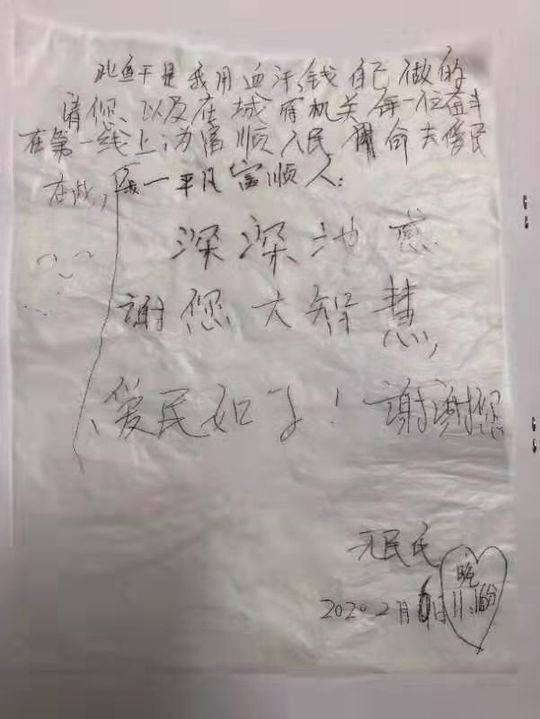 此鱼干是我用血汗钱自己做的
请您以及在城西机关每一位奋斗
在第一线上为富顺人民 拼命去爱民
在此，我一平凡富顺人：
深深地感
谢您大智慧，
爱民如子！谢谢您
民氏
晚
2020.2月6日 11:16分